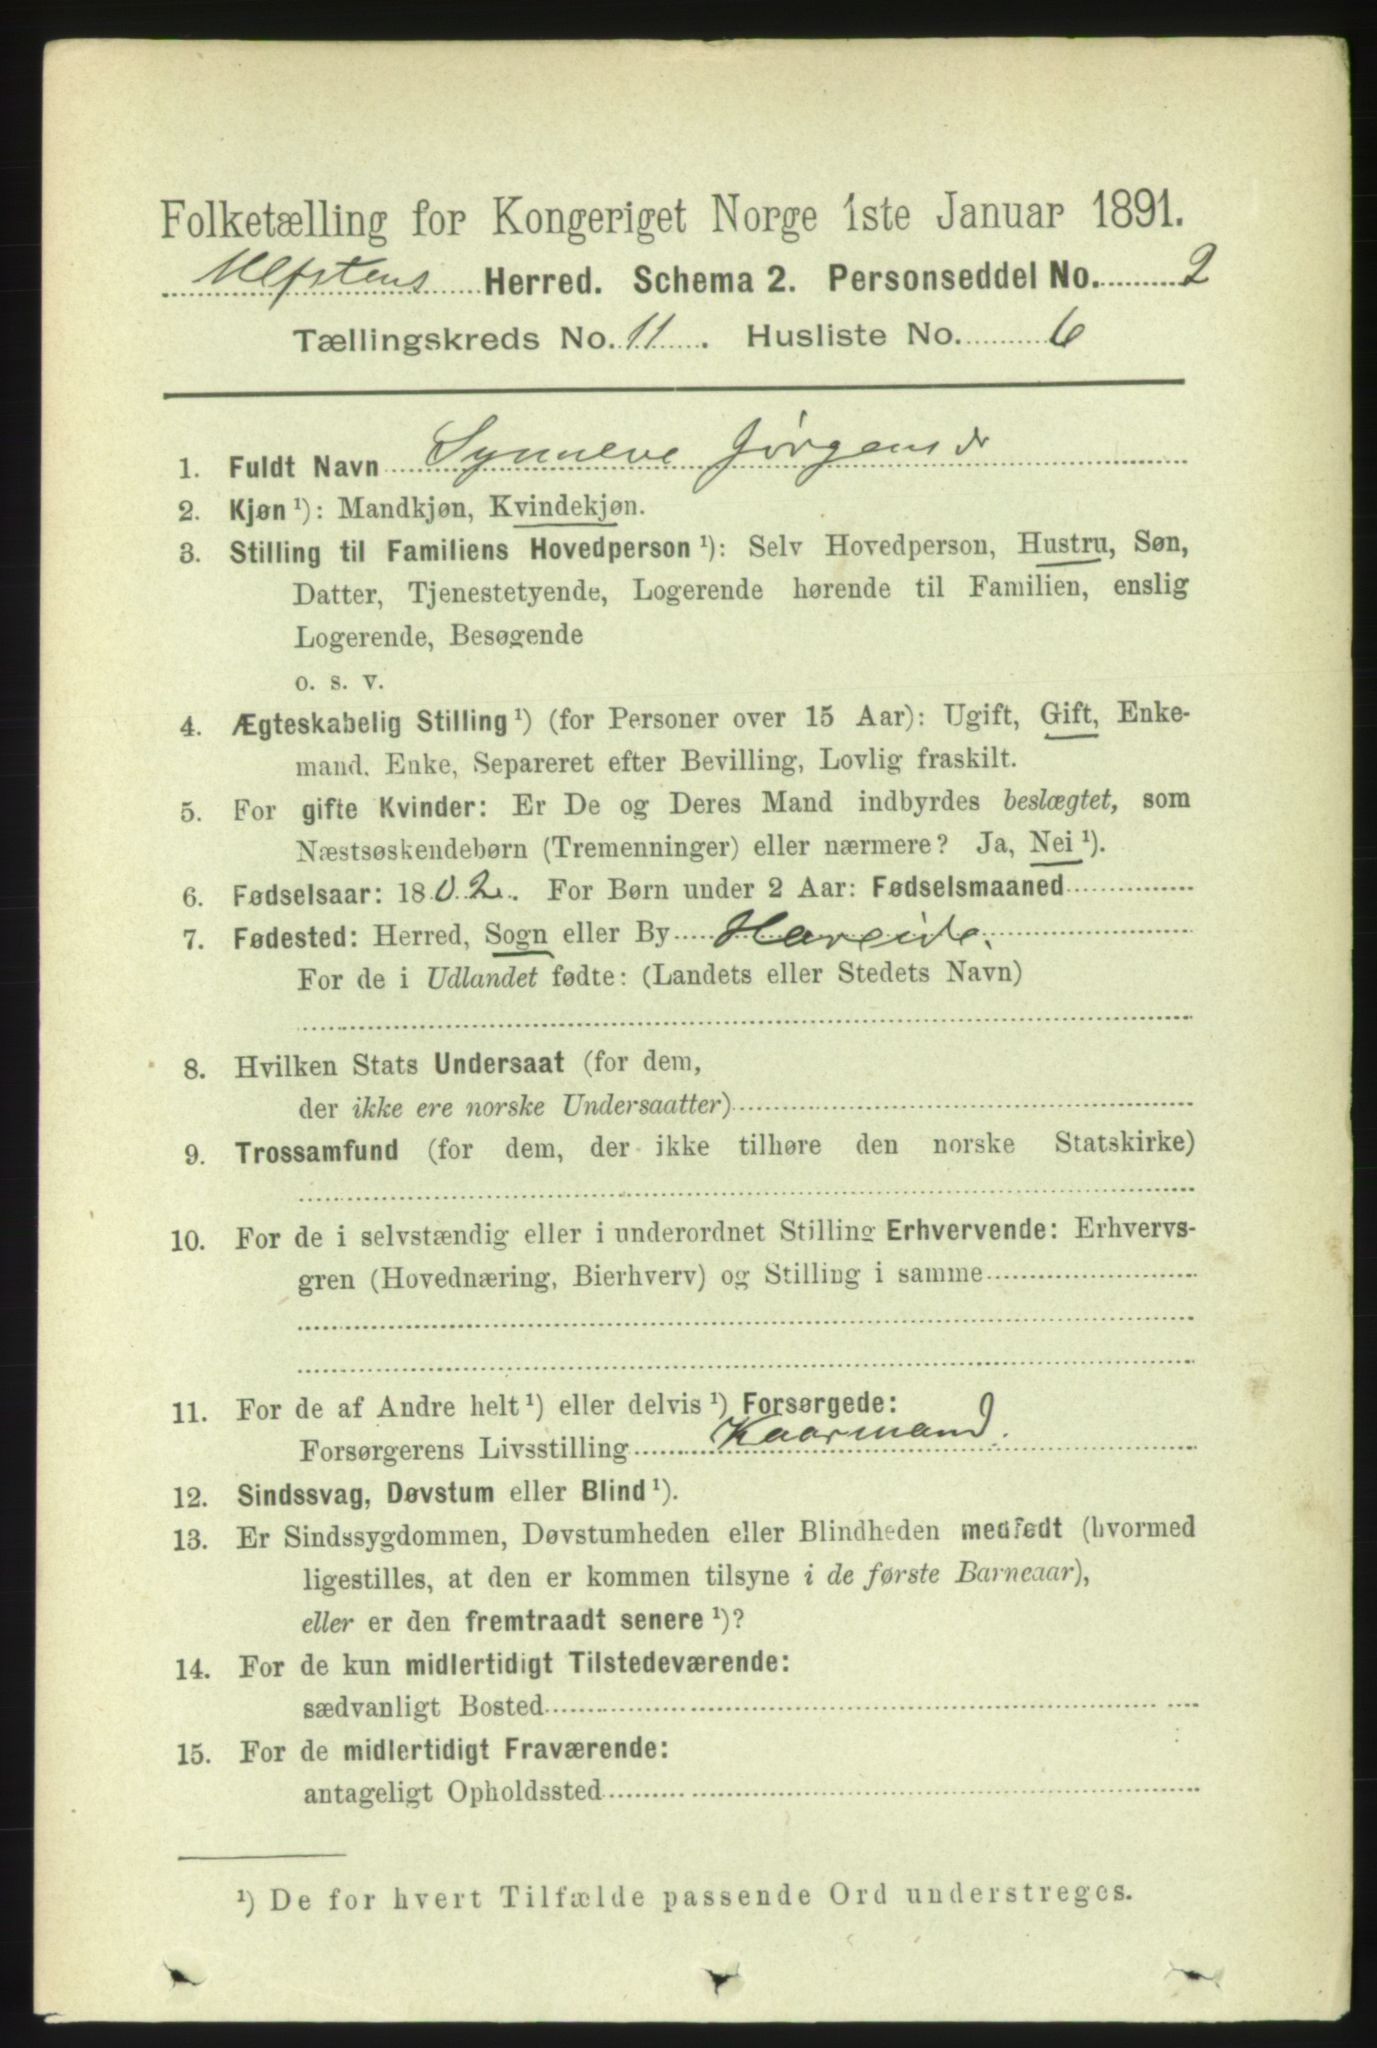 Folketælling for Kongeriget Norge 1ste Januar 1891.
Ulfstens Herred. Schema 2. Personseddel No. 2
Tællingskreds No. 11. Husliste No. 6
1. Fuldt Navn Synneve Jørgensdr
2. Kjøn ¹): Mandkjøn, Kvindekjøn.
3. Stilling til Familiens Hovedperson ¹): Selv Hovedperson, Hustru, Søn,
Datter, Tjenestetyende, Logerende hørende til Familien, enslig
Logerende, Besøgende
o. s. v.
4. Ægteskabelig Stilling ¹) (for Personer over 15 Aar): Ugift, Gift, Enke-
mand, Enke, Separeret efter Bevilling, Lovlig fraskilt.
5. For gifte Kvinder: Er De og Deres Mand indbyrdes beslægtet, som
Næstsøskendebørn (Tremenninger) eller nærmere? Ja, Nei ¹).
6. Fødselsaar: 1802. For Børn under 2 Aar: Fødselsmaaned
7. Fødested: Herred, Sogn eller By Hareide.
For de i Udlandet fødte: (Landets eller Stedets Navn)
8. Hvilken Stats Undersaat (for dem,
der ikke ere norske Undersaatter)
9. Trossamfund (for dem, der ikke tilhøre den norske Statskirke)
10. For de i selvstændig eller i underordnet Stilling Erhvervende: Erhvervs-
gren (Hovednæring, Bierhverv) og Stilling i samme
11. For de af Andre helt ¹) eller delvis ¹) Forsørgede:
Forsørgerens Livsstilling Kaarmand.
12. Sindssvag, Døvstum eller Blind ¹).
13. Er Sindssygdommen, Døvstumheden eller Blindheden medfødt (hvormed
ligestilles, at den er kommen tilsyne i de første Barneaar),
eller er den fremtraadt senere ¹)?
14. For de kun midlertidigt Tilstedeværende:
sædvanligt Bosted
15. For de midlertidigt Fraværende:
antageligt Opholdssted
¹) De for hvert Tilfælde passende Ord understreges.